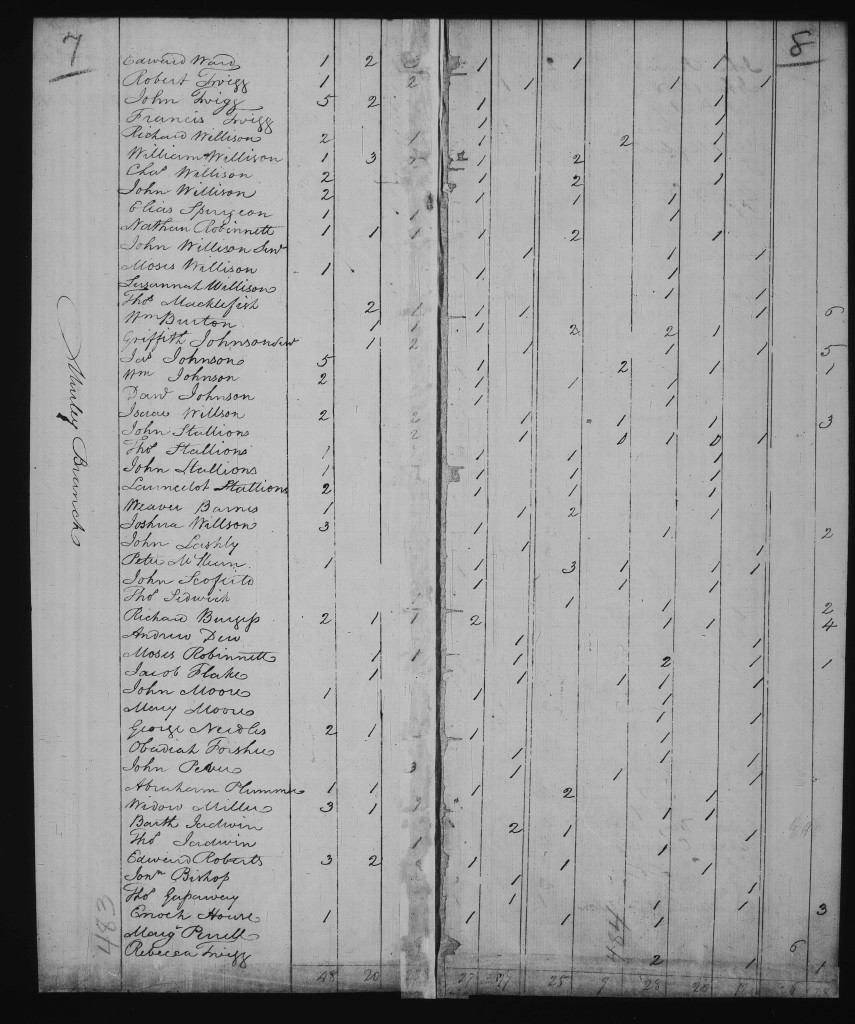 7
8
Edward Ward 1 2 1 1 1
Robert Twigg 1 2 1 1 1
John Twigg 5 2 1 1
Francis Twigg 1 1
Richard Willison 2 1 1 2 1
William Willison 1 3 1 2 1
Chas Willison 2 1 2 1
John Willison 2 1 1 1
Elias Spurgeon 1 1 1 1
Nathan Robinnett 1 1 1 1 2 1
John Willison Senr 1 1 1
Moses Willison 1 1 1
Susannah Willison 1 1
Thos Macklefish 2 1 1 1 1 6
Wm Burton 1 1 1 2 2 1
Griffith Johnson Senr 1 2 1 1 1 5
Jas Johnson 5 1 2 1 1
Wm Johnson 2 1 1 1
Davd Johnson 1 1
Isaac Willson 2 2 1 1 1 3
John Stallions 2 1 0 1 0 1
Thos Stallions 1 1 1 1
John Stallions 1 1 1 1
Launcelot Stallions 2 1 1 1
Weaver Barnes 1 1 2 1
Joshua Willson 3 1 1 2
John Lashly 1 1
Peter 1 1 3 1 1 1
John 1 1 1
Thos Sidwick 1 1 2
Richard Burgess 2 1 1 2 1 1 4
Andrew Dew 1 1
Moses Robinnett 1 1 1 2 1 1
Jacob Flake 1 1 1 1 1
John Moore 1 1 1
Mary Moore 1 1
George Needles 2 1 1 1
Obadiah Forshee 1 1 1
John 3 1 1 1
Abraham Plummer 1 1 1 2 1
Widow Miller 3 1 1 1
Barth Jadwin 2 1 1
Thos Jadwin 1 1
Edward Roberts 3 2 1 1 1
Jonn Bishop 1 1
Thos Gapaway 1 1 1
Enoch House 1 1 1 1 3
Margt
Rebecca Twigg 2 1 6 1
48 20 27 25 9 28 20
Murley Branch
483
484